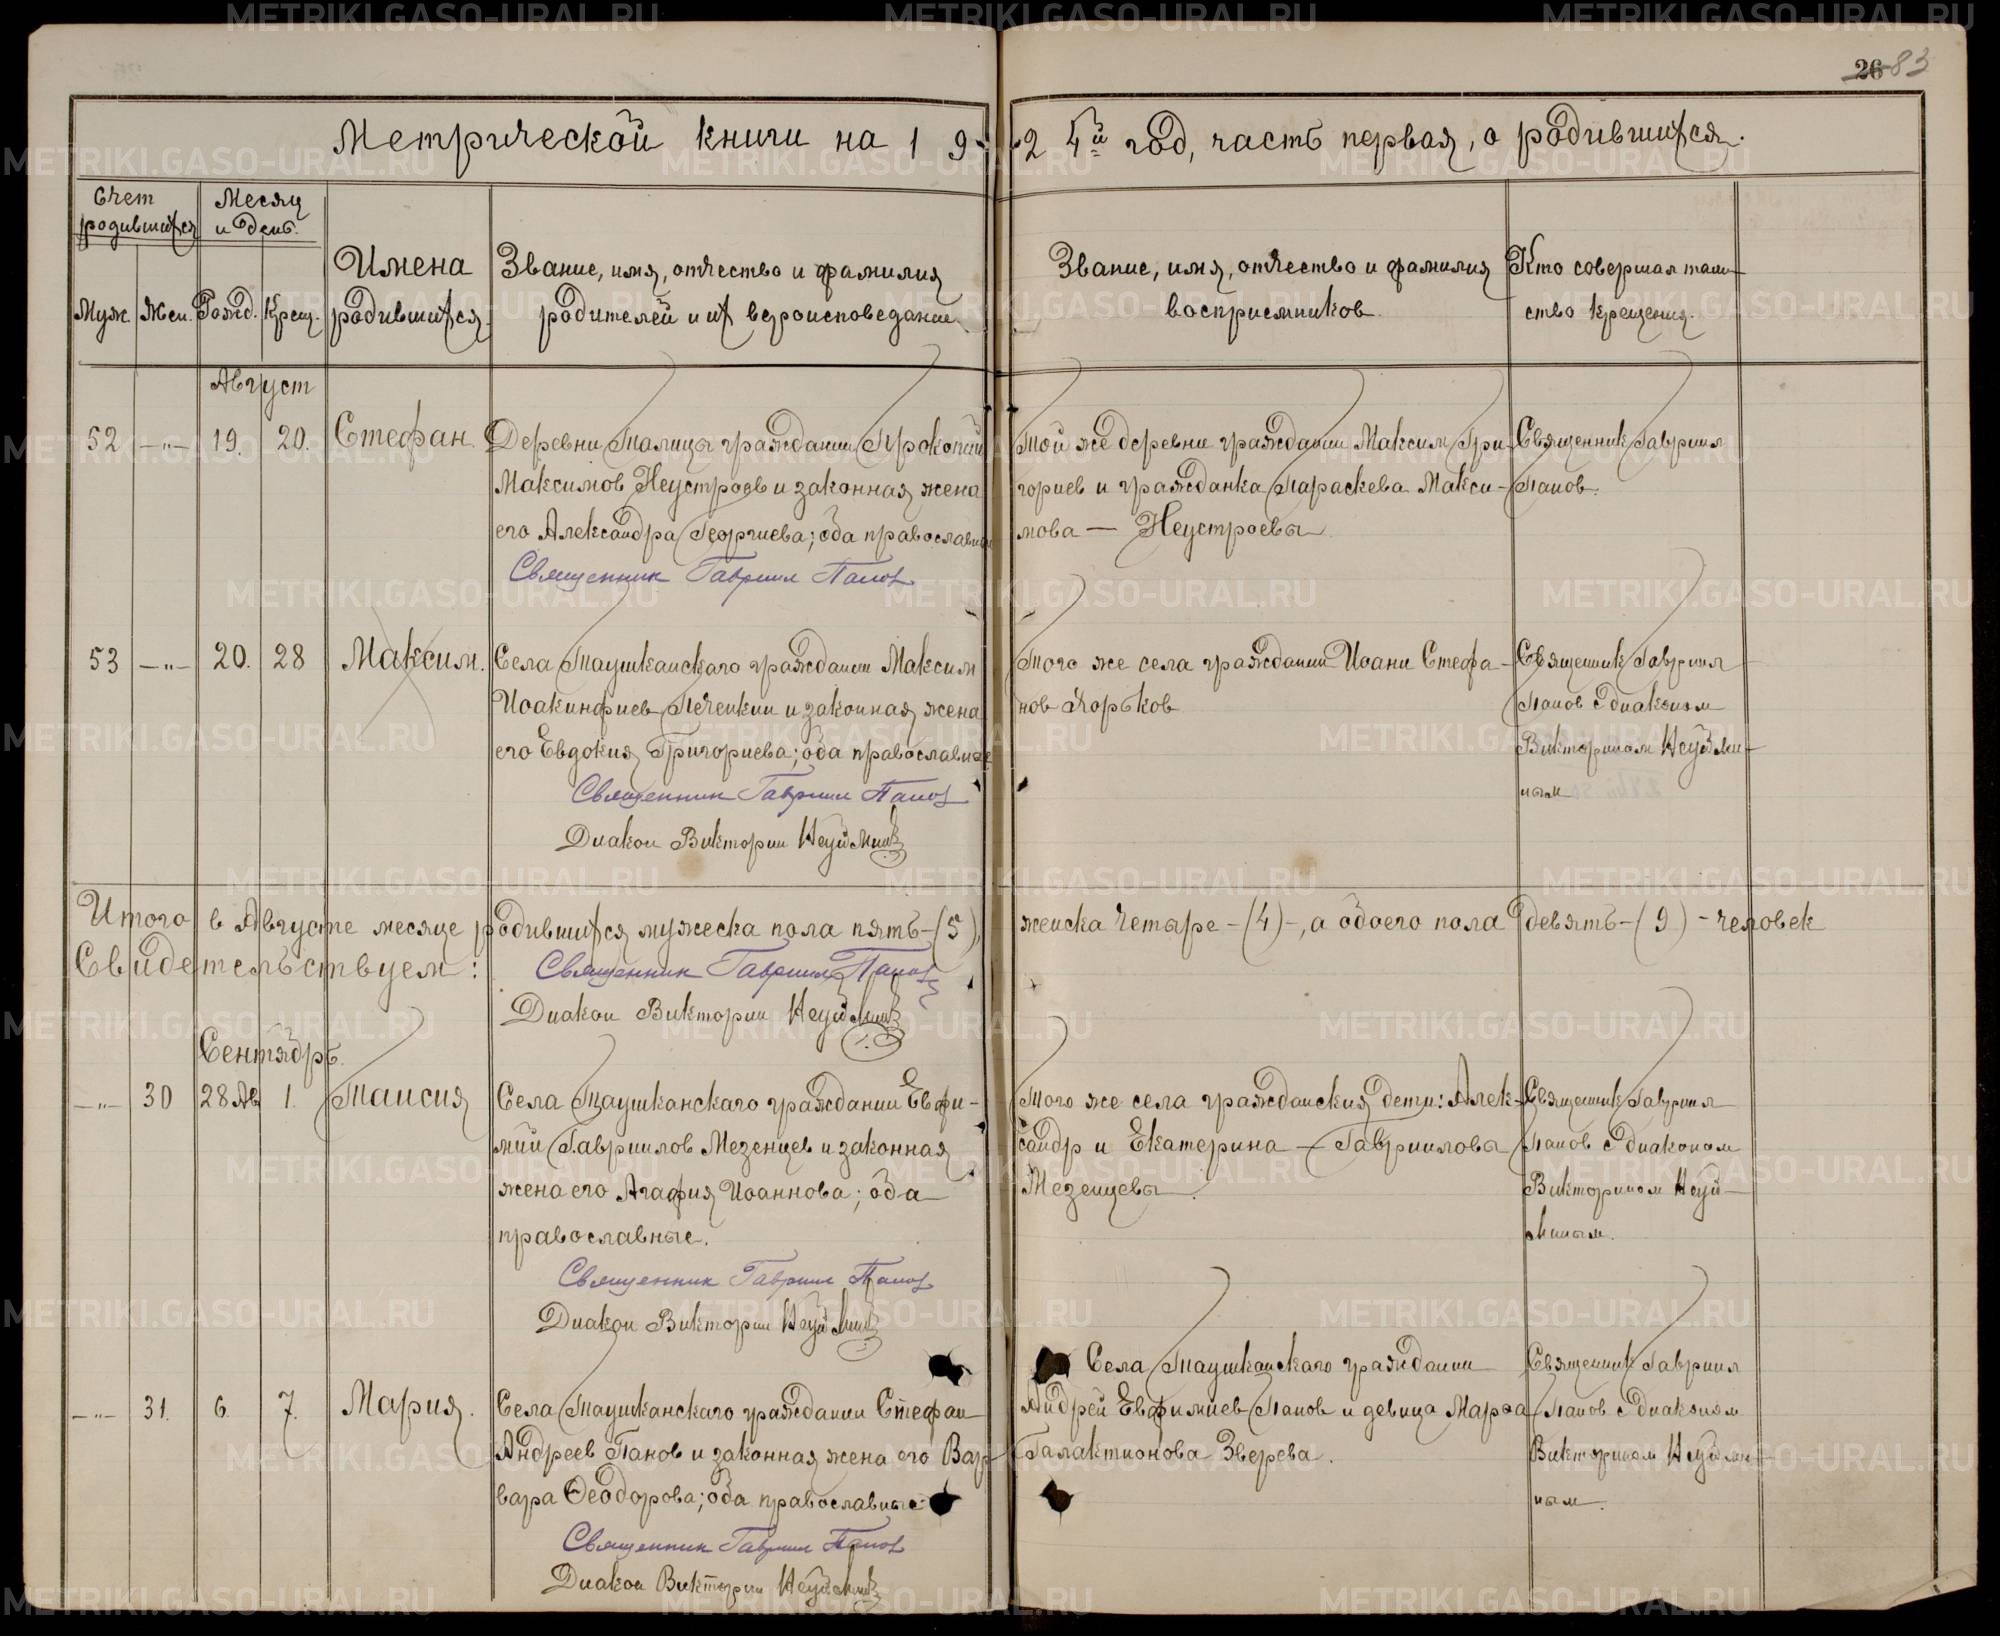 26 83
Метрической книги на 1 9
2 4й год, часть первая, о родившихся.
Счет родившихся
Муж. Жен.
Месяц и день.
Рожд. Крещ.
Имена
родившихся.
Звание, имя, отчество и фамилия
родителей и их вероисповедание
Звание, имя, отчество и фамилия
восприемников.
Кто совершал таин-
ство крещения.
Август
52 —„— 19. 20. Стефан.
Деревни Талицы гражданин Прокопий
Максимов Неустроев и законная жена
его Александра Георгиева; оба православные
Священник Гавриил Попов
Той же деревни гражданин Максим Гри-
гориев и гражданка Параскева Макси-
мова — Неустроевы
Священник Гавриил
Попов.
53 —„— 20. 28 Максим.
Села Таушканскаго гражданин Максим
Иоакинфиев Печенкин и законная жена
его Евдокия Григориева; оба православные
Священник Гавриил Попов
Диакон Викторин Неуймин
Того же села гражданин Иоанн Стефа-
нов Хорьков
Священник Гавриил
Попов с диаконом
Викторином Неуйми-
ным
Итого в Августе месяце родившихся мужеска пола пять-(5),
женска четыре-(4)-, а обоего пола девять-(9)-человек
Свидетельствуем:
Священник Гавриил Попов
Диакон Викторин Неуймин
Сентябрь.
—„— 30 28 Ав 1. Таисия
Села Таушканскаго гражданин Евфи-
мий Гавриилов Мезенцев и законная
жена его Агафия Иоаннова; оба
православные.
Священник Гавриил Попов
Диакон Викторин Неуймин
Того же села гражданския дети: Алек-
сандр и Екатерина — Гаврииловы
Мезенцевы.
Священник Гавриил
Попов с диаконом
Викторином Неуй-
миным.
—„— 31. 6. 7. Мария.
Села Таушканскаго гражданин Стефан
Андреев Панов и законная жена его Вар-
вара Ѳеодорова; оба православные
Священник Гавриил Попов
Диакон Викторин Неуймин
Села Таушканскаго гражданин
Андрей Евфимиев Панов и девица Марѳа
Галактионова Зверева.
Священник Гавриил
Попов с диаконом
Викторином Неуйми-
ным.
METRIKI.GASO-URAL.RU